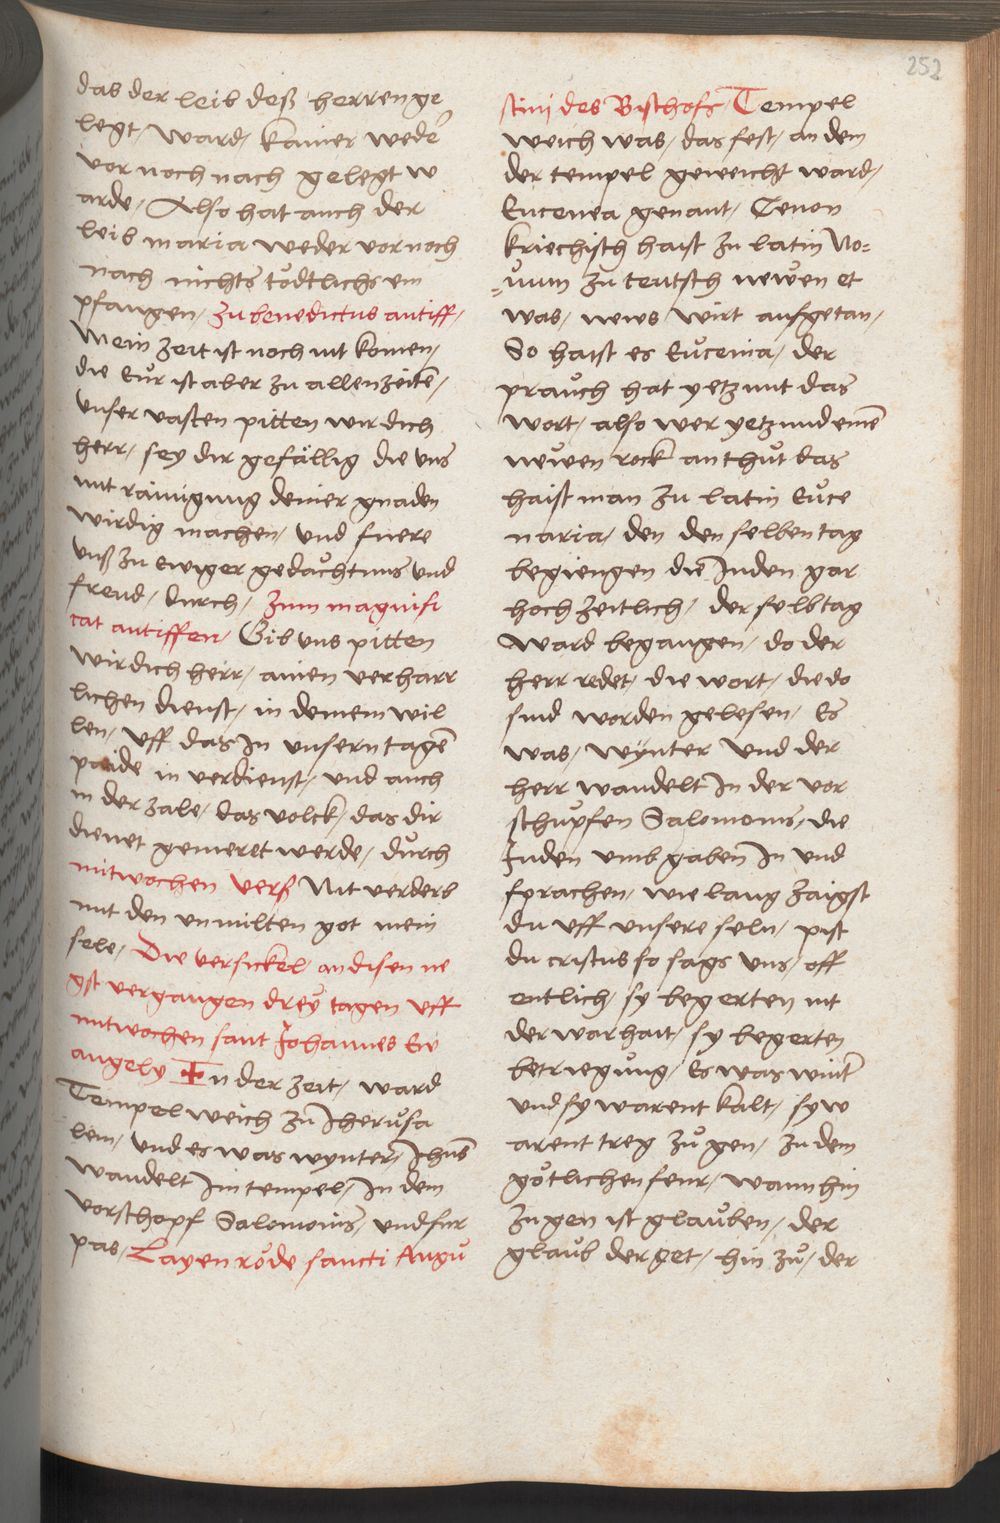 252
das der leib deß herren ge
legt / ward / kainer wede᷑
vor noch nach gelegt w
arde / Also hat auch der
leib maria weder vor noch
nach nichts tödtlichs em
pfangen / zu benedictus antiff /
Mein zeit ist noch nit komen /
die Eur ist aber zu allen zeite̅ /
Unser vasten pitten wir dich
herr / sey dir gefällig die uns
mit rainigung deiner gnaden
wirdig machen / und fuere
unß zu ewiger gedächtnus und
freud / durch / zum magnifi
cat antiffen / Gib uns pitten
wir dich herr / ainen verharr
lichen dienst / in deinem wil
len / uff das In unsern tage̅
paide in verdienst / und auch
in der zale / das volck / das dir
dienet gemeret werde / durch
mitwochen verß Nit verderb
mit den unmilten got mein
sele / Die versickel an disen ne
gst vergangen dreÿ tagen uff
mitwochen sant Johannes Ew
angely In der zeit / ward
Tempel weich zu Jherusa
lem / und es was wynter / Jhus̅
wandelt Im tempel / In dem
vorschopf Salomonis / und fur
pas / Layen rode sancti Augu
stini des Bischofs / Tempel
weich was / das fest / an dem
der tempel geweicht ward /
Encenea genant / Cenon
kriechisch haist zu latin No=
=uum zu teutsch newen et
was / news wirt aufgetan /
So haist es Eucenia / der
prauch hat yetzunt das
wort / also wer yetzund eine̅
neuwen rock an thut das
haist man zu latin Euce
naria / den den selben tag
begiengen die Juden gar
hoch zeitlich / der selb tag
ward begangen / do der
herr redet / die wort / die do
sind worden gelesen / Es
was / wÿnter und der
herr wandelt In der vor
schupfen Salomonis / die
Juden umb gaben In und
sprachen / wie lang zaigst
du uff unsere seln / pist
du cristus so sags uns / off
entlich / sy begerten nit
der warhait / sy begerten
betriegung / Es was wint᷑
und sy warent kalt / sy w
arent treg zu gen / zu dem
götlichen feur / wann hin
zu gen ist glauben / der
glaub der get / hin zu / der